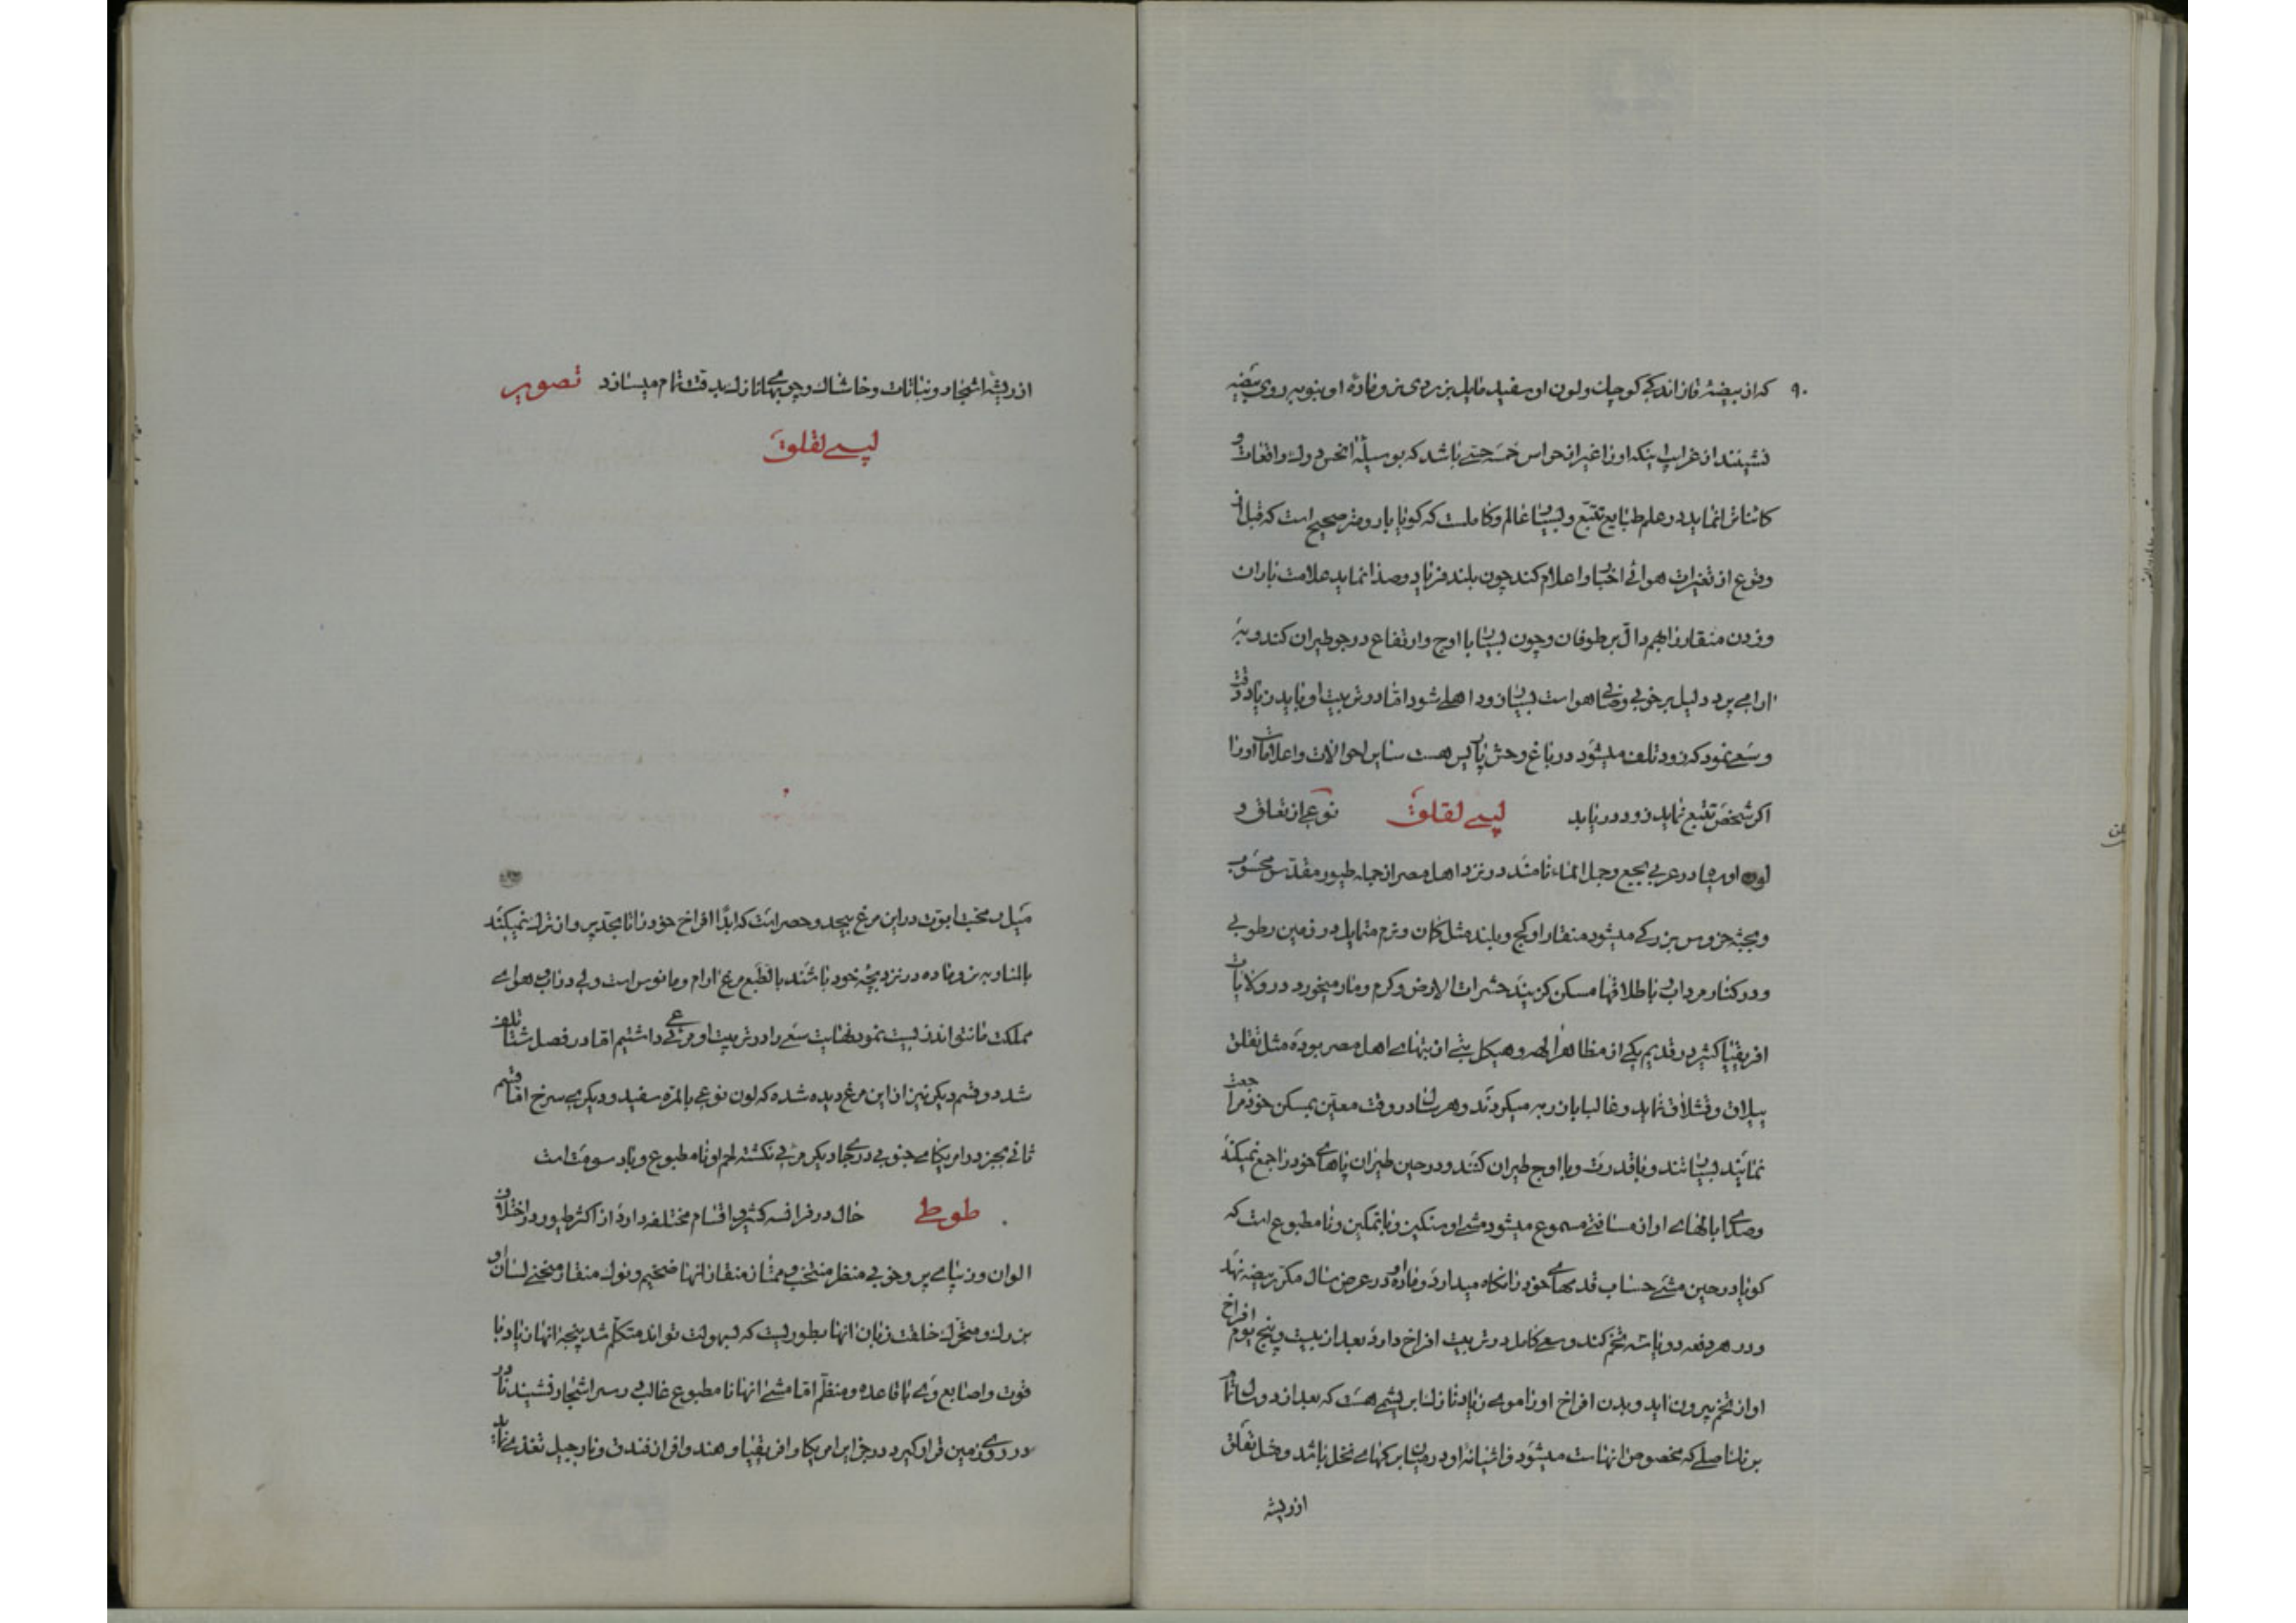 ۹۰
که از بیضهٔ قاز اندکی کوچک و لون او سفید مایل بزردی نر و مادهٔ او بنوبه بر روی بیضه
نشینند از غرایب اینکه او را غیر از حواس خمسه حسی باشد که بوسیلهٔ آنحس درک واقعات و
کاتناتن نماید در علم طبایع تتبع و بسیار عالم و کاملست که کویا بارومتر صحیح است که قبل از
وقوع از تغیرات هوائی اخبار و اعلام کند چون بلند فریاد و صدا نماید علامت باران
و زدن منقار را بهم دال بر طوفان و چون بسیار با اوج و ارتفاع در جو طیران کند و به
ارامی پرد دلیل بر خوبی و صفای هوا است بسیار زود اهلی شود اما در تربیت او باید زیاد دقت
و سعی نمود که زود تلف میشود در باغ وحش پاریس هست سایر احوالات و اعلامات او را
اکر شخص تتبع نماید زود دریابد لپسی لقلق نوعی از لقلق و
لون او سیاه در عربی بجع و جمل الماء نامند در نزد اهل مصر از جمله طیور مقدس محسوب
و بجثه خروس بزرکی میشود منقار او کج و بلند مثل کمان و نرم متمایل در زمین رطوبی
و در کنار مرداب باطلاقها مسکن کزیند حشرات الارض و کرم و مار میخورد در ولایات
افریقیا کثیر در قدیم یکی از مظاهر الهه و هیکل بتی از بتهای اهل مصر بوده مثل لقلق
ییلاق و قشلاق نماید و غالبا بان ربه میکردند و هر سال در وقت معین بمسکن خود مراجعت
نمایند بسیار تند و باقدرت و با اوج طیران کنند و در حین طیران پاهای خود را جمع نمیکند
و صدا بالهای او از مسافتی مسموع میشود مشی او سنکین و باتمکین و نامطبوع است که
کویا در حین مشی حساب قدمهای خود را نکاه میدارد و ماده او در عرض سال مکرر بیضه نهد
و در هر دفعه دو یا سه تخم کند و سعی کامل در تربیت افراخ دارد بعد از بیست و پنج یوم افراخ
او از تخم بیرون اید و بدن افراخ او را موی زیاد نازک ابریشمی هست که بعد از دو سال تمام
بر بال اصلی که مخصوص انهاست میشود و اشیانهٔ او در میان برکهای نخل باشد و مثل لقلق
از ریشه
از ریشهٔ اشجار و نباتات و خاشاک و چوبهای نازک بدقت تمام میسازد تصویر
لپسی لقلق
میل و محبت ابوت در این مرغ بیحد و حصر است که ابدا افراخ خود را تا بحد پرواز ترک نمیکند
بالمناوبه نر و ماده در نزد بچهٔ خود باشند بالطبع مرغ ارام و مانوس است ولی در اب هوای
مملکت ما نتواند زیست نمود نهایت سعی را در تربیت او مرعی داشتیم اما در فصل شتا تلف
شد دو قسم دیکر نیز از این مرغ دیده شده که لون نوعی بالمره سفید و دیکری سرخ اما قسم
ثانی بجز در امریکای جنوبی در جای دیکر مرئی نکشته لحم او نامطبوع و باد سومت است
طوطی حال در فرانسه کثیر و اقسام مختلفه دارد از اکثر طیور در اختلاف
الوان و زیبای پر و خوبی منظر منتخب و ممتاز منقار انها ضخیم و نوک منقار منحنی لسان او
بزرک و متحرک خلقت زبان انها بطوریست که بسهولت تواند متکلم شد پنجه انها زیاد با
قوت و اصابع وی با قاعده و منظم اما مشی انها نا مطبوع غالب در سر اشجار نشیند نادر
در روی زمین قرار کیرد در جزایر امریکا و افریقیا و هند وافر از فندق و نارجیل تغذی نماید